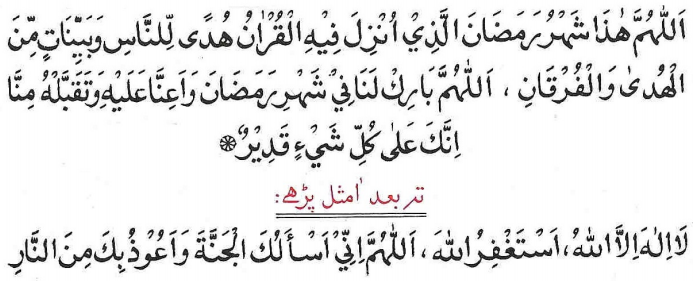 اَللّٰهُمَّ هٰذَا شَهْرُ رَمَضَانَ الَّذِيْ اُنْزِلَ فِيْهِ الْقُرْاٰنُ هُدًى لِّلنَّاسِ وَبَيِّنَاتٍ مِّنَ
الْهُدىٰ وَالْفُرْقَانِ ، اَللّٰهُمَّ بَارِكْ لَنَا فِيْ شَهْرِ رَمَضَانَ وَاَعِنَّا عَلَيْهِ وَتَقَبَّلْهُ مِنَّا
اِنَّكَ عَلٰى كُلِّ شَيْءٍ قَدِيْرٌ
تہ بعد اْمثل پڑھے:
لَا اِلٰهَ اِلَّا اللهُ، اَسْتَغْفِرُ اللهَ، اَللّٰهُمَّ اِنِّيْ اَسْأَلُكَ الْجَنَّةَ وَاَعُوْذُ بِكَ مِنَ النَّارِ